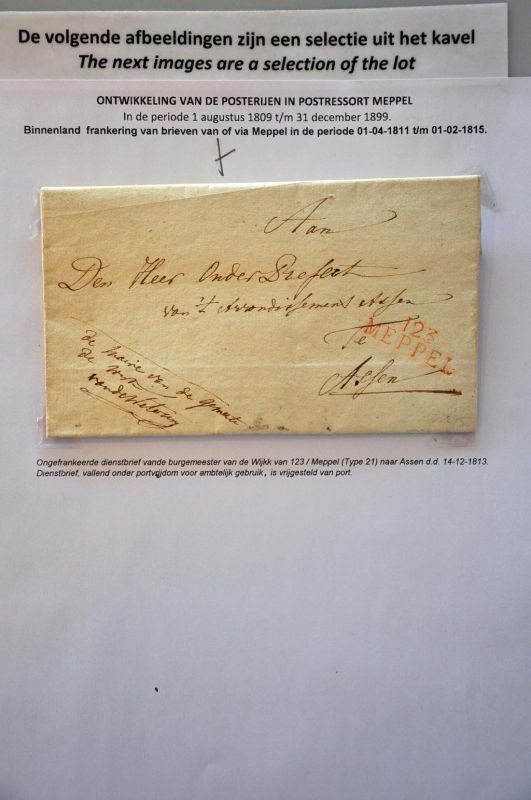 De volgende afbeeldingen zijn een selectie uit het kavel
The next images are a selection of the lot
ONTWIKKELING VAN DE POSTERIJEN IN POSTRESSORT MEPPEL
In de periode 1 augustus 1809 t/m 31 december 1899.
Binnenland frankering van brieven van of via Meppel in de periode 01-04-1811 t/m 01-02-1815.
Aan
Den Heer Onder Prefect
van 't Arrondissement Assen
Te
Assen
123
MEPPEL
de Maire van de Gemeente
de Wijk
Ongefrankeerde dienstbrief vande burgemeester van de Wijkk van 123 / Meppel (Type 21) naar Assen d.d. 14-12-1813.
Dienstbrief, vallend onder portvrijdom voor ambtelijk gebruik, is vrijgesteld van port.